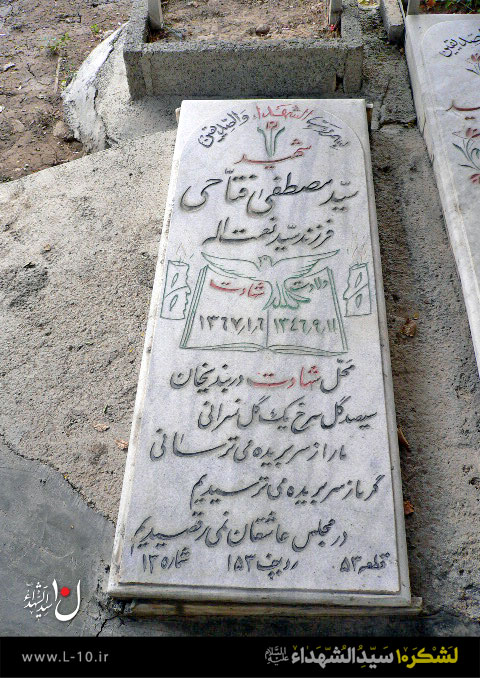 بسم رب الشهداء والصدیقین
شهید
سید مصطفی فتاحی
فرزند سید نعمت اله
ولادت شهادت
۱۳۴۶،۹،۱۱ ۱۳۶۷،۱،۶
محل شهادت دربندیخان
سیصد گل سرخ یک گل نصرانی
ما را ز سر بریده می ترسانی
گر ما ز سر بریده می ترسیدیم
در مجلس عاشقان نمی رقصیدیم
قطعه ۵۳ ردیف ۱۵۳ شماره ۱۳
والصدیقین
شهید
سید الشهداء
www.L-10.ir
لشکر ۱۰ سید الشهداء علیه السلام